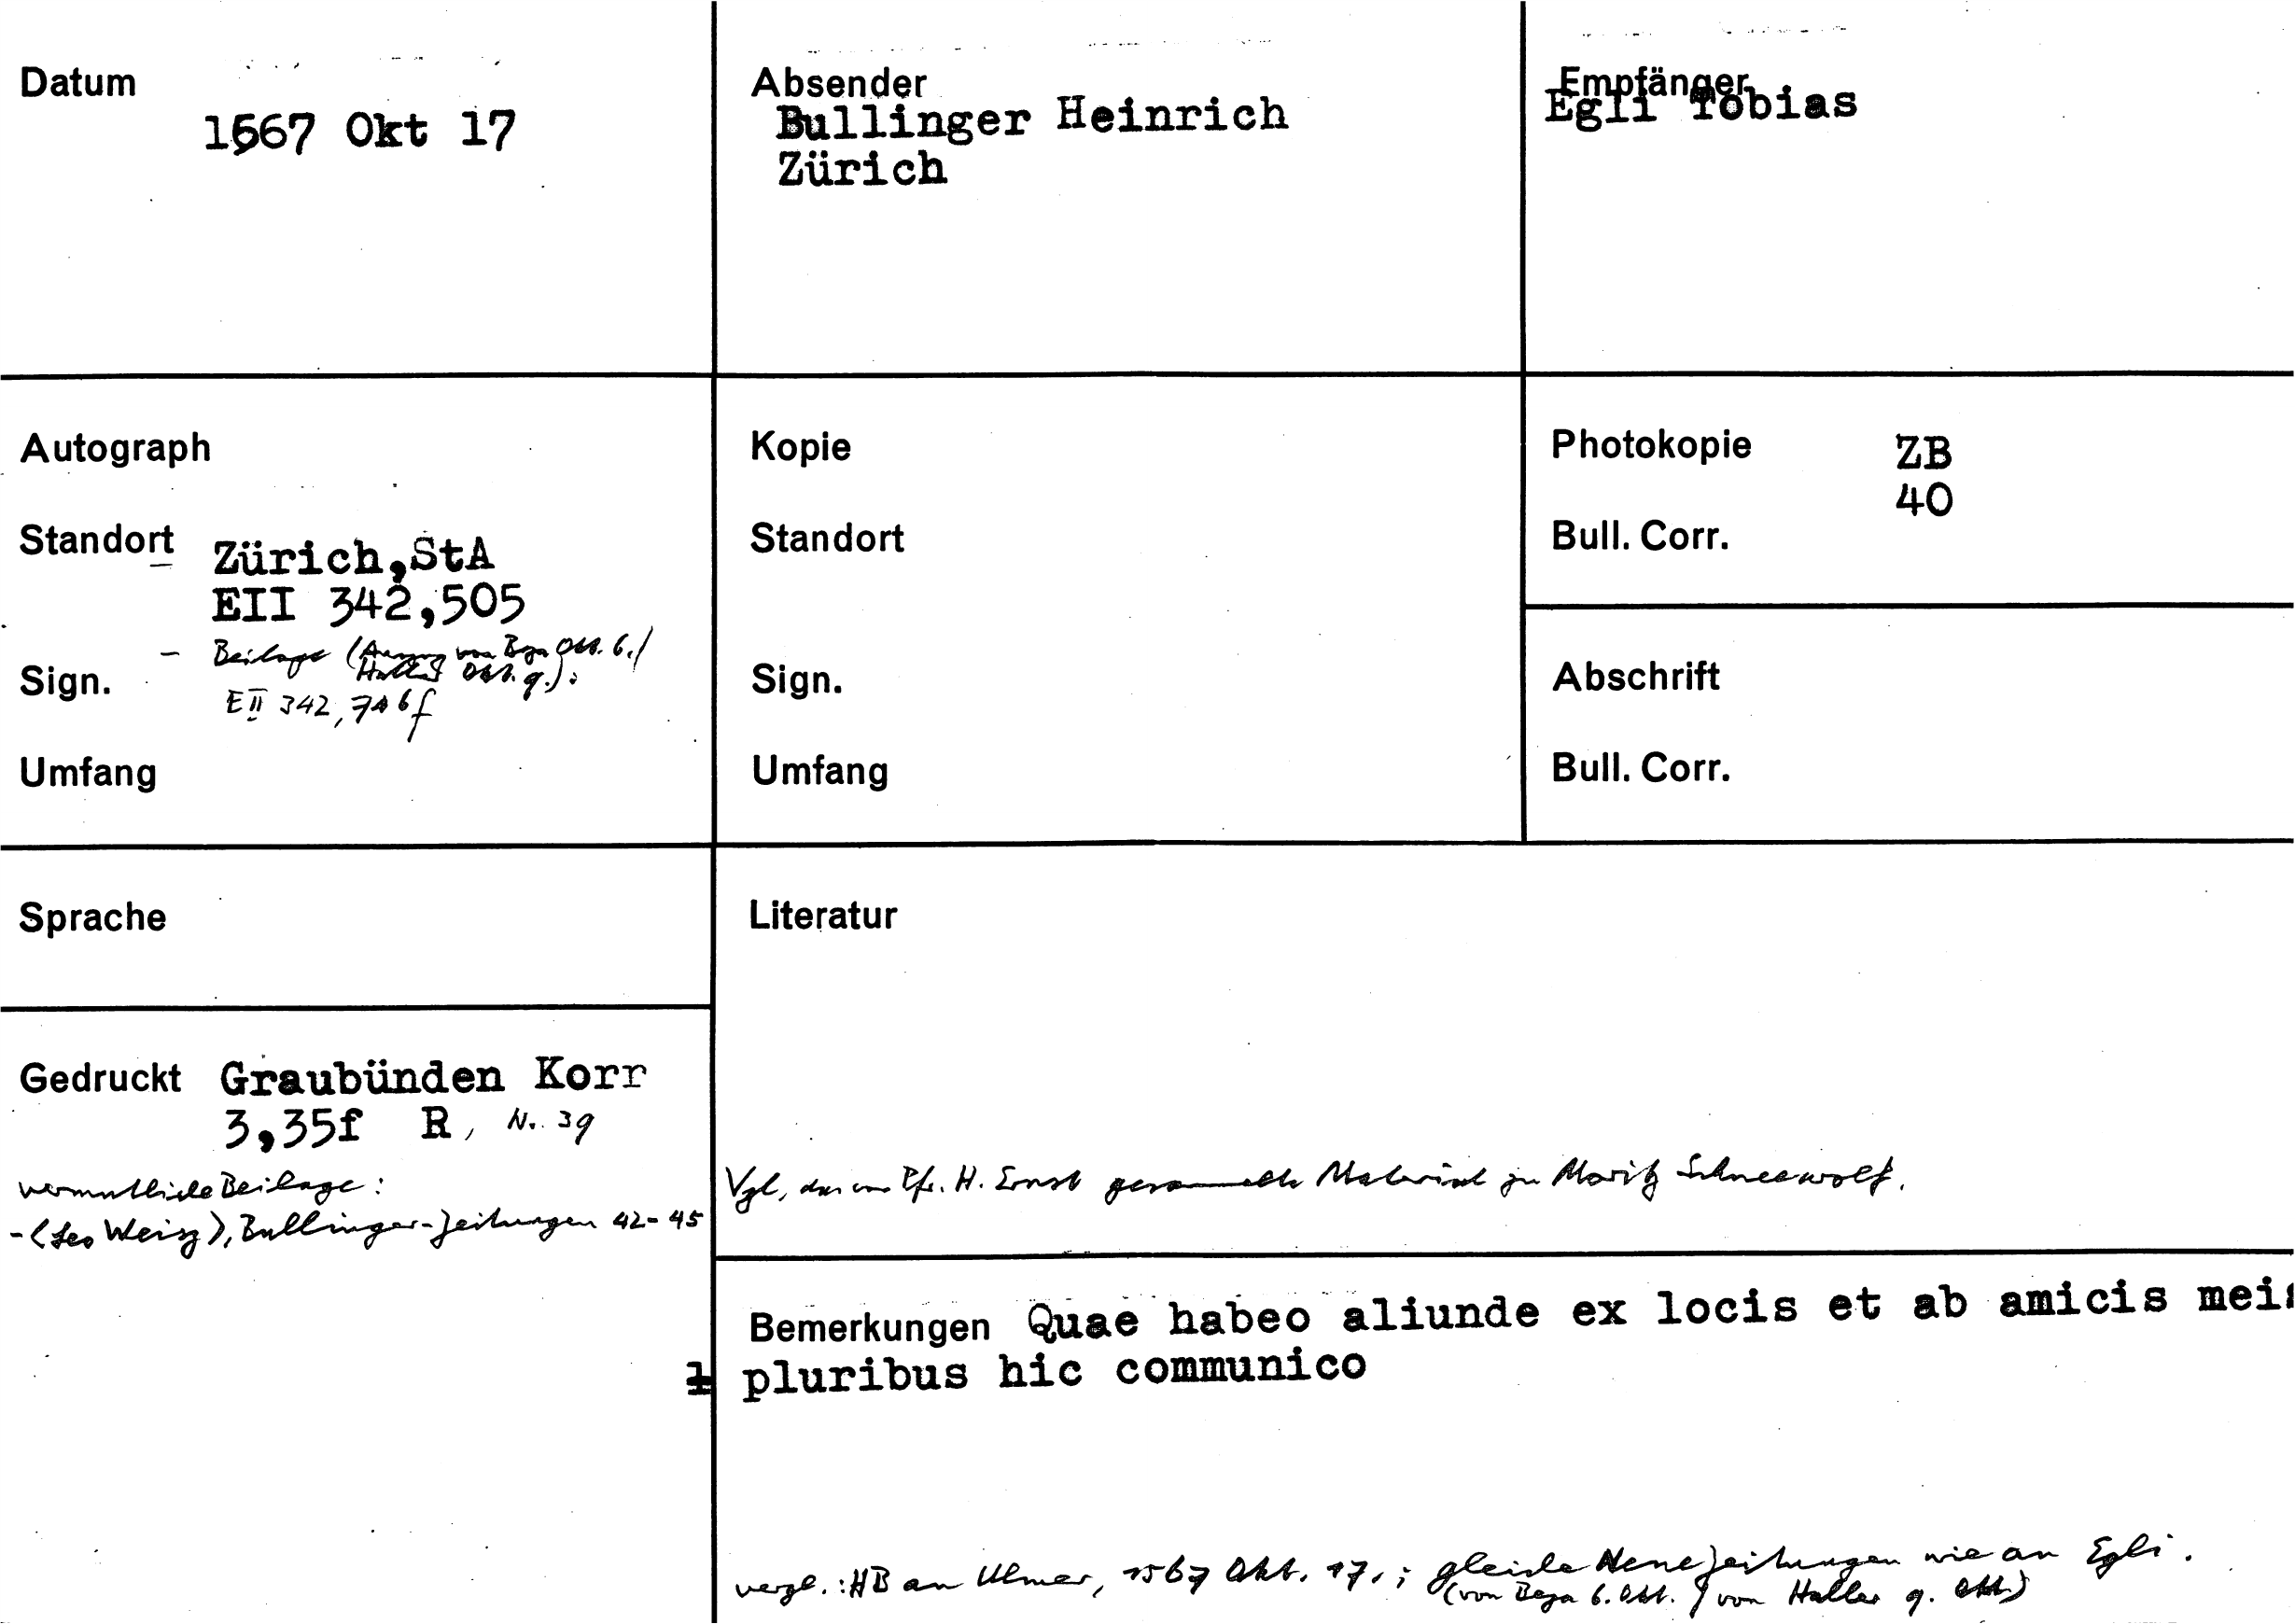 Datum
1567 Okt 17
Absender
Bullinger Heinrich
Zürich
Empfänger
Egli Tobias
Autograph
Standort Zürich,StA
EII 342,505
- Beilage (Auszug von Beza Okt. 6./
Haller Okt. 9.):
Sign. EII 342, 746f
Umfang
Kopie
Standort
Sign.
Umfang
Photokopie ZB
40
Bull. Corr.
Abschrift
Bull. Corr.
Sprache
Gedruckt Graubünden Korr
3,35f R, Nr. 39
vermutliche Beilage:
- (Leo Weisz), Bullinger-Zeitungen 42-45
Literatur
Vgl. das von Pfr. H. Ernst gesammelte Material zu Moritz Schneewolf.
Bemerkungen Quae habeo aliunde ex locis et ab amicis meis
pluribus hic communico
vergl.: HB an Ulmer, 1567 Okt. 17.; gleiche Neue Zeitungen wie an Egli.
(von Beza 6. Okt. / von Haller 9. Okt.)